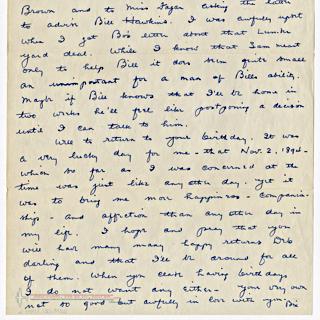 Brown and to Miss Fagen asking the latter
to advise Bill Hawkins. I was awfully upset
when I got Bo's letter about that Lumber
yard deal. While I know that Sam meant
only to help Bill it does seem quite small
an unimportant for a man of Bills ability.
Maybe if Bill knows that I'll be home in
two weeks he'll feel like postponing a decision
until I can talk to him.
Will to return to your birthday. It was
a very lucky day for me - that Nov. 2. 1894 -
which so far as I was concerned at the
time was just like any other day. yet it
was to bring me more happiness - companion
ship - and affection than any other day in
my life. I hope and pray that you
will have many many happy returns Bo's
darling and that I'll be around for all
of them. When you cease having birthdays
I do not want any either - your very own
not so good but awfully in love with you Bo